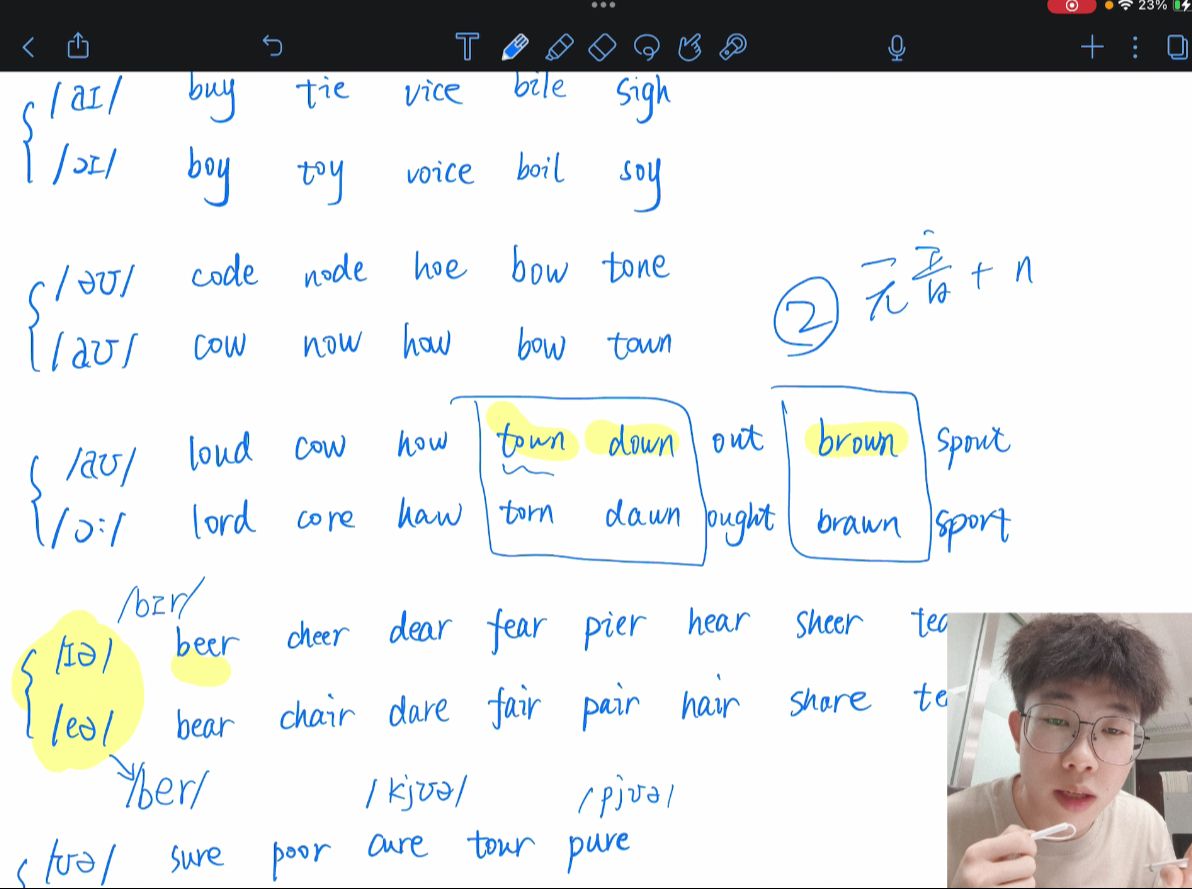 23%
T
/aɪ/ buy tie vice bile sigh
/ɔɪ/ boy toy voice boil soy
/əʊ/ code node hoe bow tone
② 元音 + n
/aʊ/ cow now how bow town
/aʊ/ loud cow how town down out brown spout
/ɔː/ lord core haw torn dawn ought brawn sport
/bɪr/
/ɪə/ beer cheer dear fear pier hear sheer
/eə/ bear chair dare fair pair hair share
/ber/ /kjʊə/ /pjʊə/
/ʊə/ sure poor cure tour pure